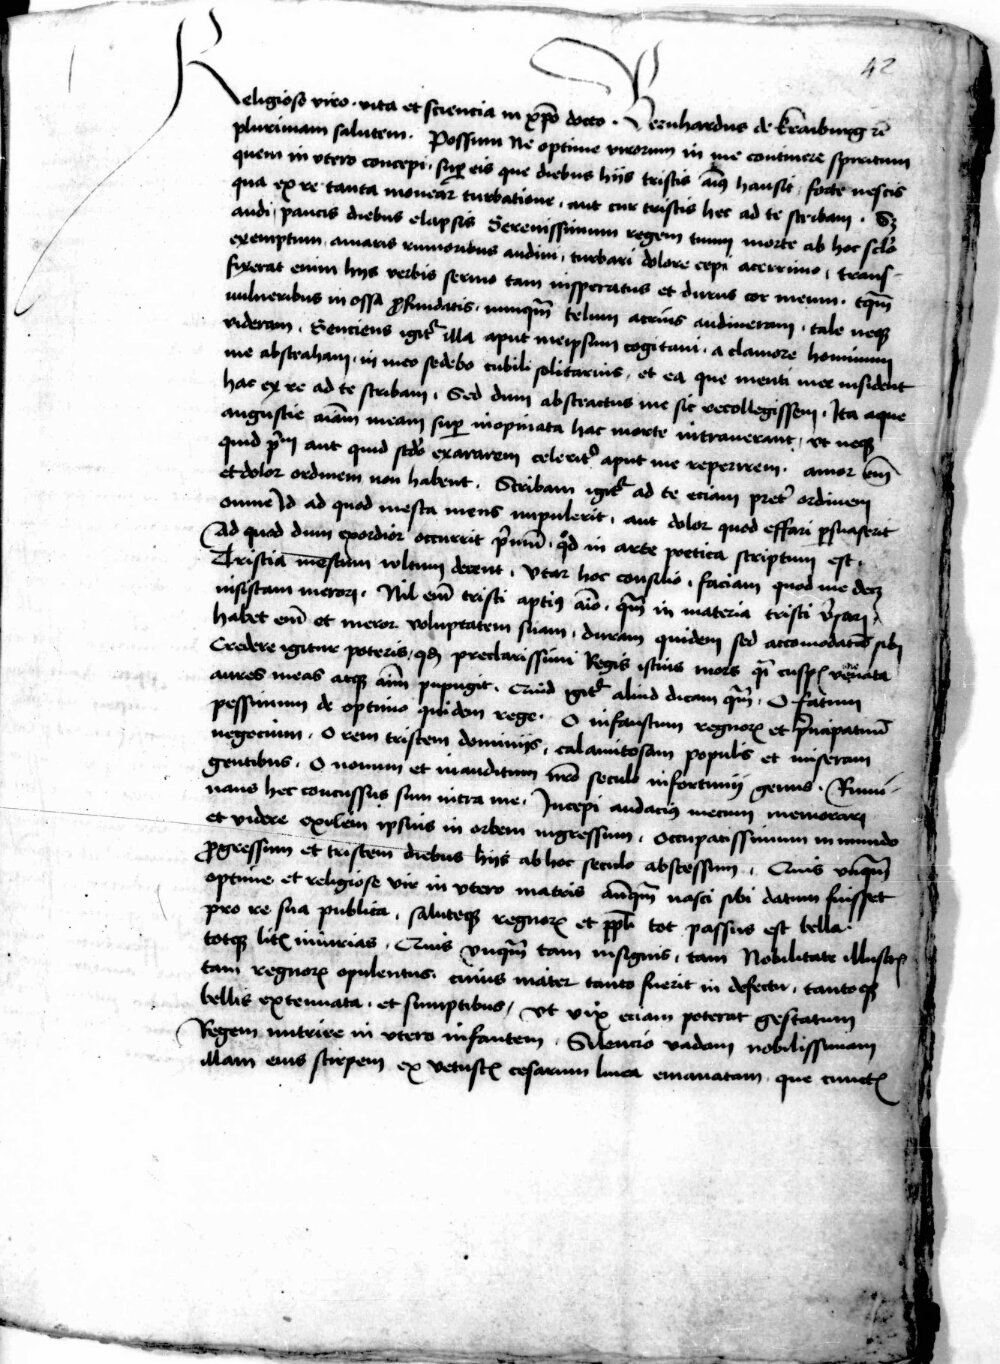 42
Religioso viro. vita et sciencia in xp̄o docto. Bernhardus de kraiburg rē
plurimam salutem. Possum ne optime virorum in me continere spiritum
quem in vtero concepi, sup̱ eis que diebus hijs tristis aīus hausit, forte nescis
qua ex re tanta moueār turbatione, aut cur tristis hec ad te scribam. Sꝫ
audi, paucis diebus elapsis Serenissimum regem tuum morte ab hoc sclō
exemptum, amaris rumoribus audiui, turbari dolore cepi acerrimo, trans-
fixerat enim hijs verbis sermo tam insperatus et durus cor meum. tq̄m
vulneribus in ossa ꝓfundatis. nunq̄m telum atrius audiueram, tale neqꝫ
videram. Senciens igit᷑ illa aput meipsum cogitaui, a clamore hominum
me abstraham, in meo sedebo cubili solitarius, et ea que menti mee insident
hac ex re ad te scribam. Sed dum abstractus me sic recollegissem. Ita aque
angustie aīam meam sup̱ inopinata hac morte intrauerant, vt neqꝫ
quid p̄m aut quid scd̄o exararem celerit᷑ aput me reperirem. amor em̄
et dolor ordinem non habent. Scribam igit᷑ ad te eciam pret᷑ ordinem
omne Id ad quod mesta mens impulerit, aut dolor quod effari p̱suaserit
Ad quod dum exordior occurrit p̄mū, qd̄ in arte poetica scriptum est.
Tristia mestum voltum decent, vtar hoc consilio, faciam quod me decꝫ
insistam merori. Nil em̄ tristi aptiꝰ aīo, q̄m in materia tristi v̄sari,
habet em̄ et meror voluptatem suam, duram quidem sed accomodatā sibi
Credere igitur poteris, qđ preclarissimi Regis istius mors q̄i cuspꝭ venenata
aures meas atqꝫ aīm pupugit. Quid igit᷑ aliud dicam q̄m. O fatum
pessimum de optimo quidem rege. O infaustum regnoꝝ et p̄ncipatuū
negocium. O rem tristem dominijs, calamitosam populis et miseram
gentibus. O nouum et inauditum nr̄o seculo infortunij genus. Rumi-
nans hec concussus sum intra me. Incepi audaciꝰ mecum memorari
et videre exilem ipsius in orbem ingressum, occupatissimum in mundo
ꝓgressum et tristem diebus hijs ab hoc seculo abscessum. Cuis vnq̄m
optime et religiose vir in vtero matris anteq̄m nasci sibi datum fuisset
pro re sua publica, saluteqꝫ regnoꝝ et pp̄li tot passus est bella.
totqꝫ litꝭ iniurias. Quis vnq̄m tam insignis, tam Nobilitate illustrꝭ
tam regnoꝝ opulentus, cuius mater tanto fuerit in defectu, tantoqꝫ
bellis extenuata, et sumptibus, vt vix eciam poterat gestatum
Regem nutrire in vtero infantem. Silencio vadam nobilissimam
illam eius stirpem ex vetustꝭ cesarum linea emanatam, que cunctꝭ